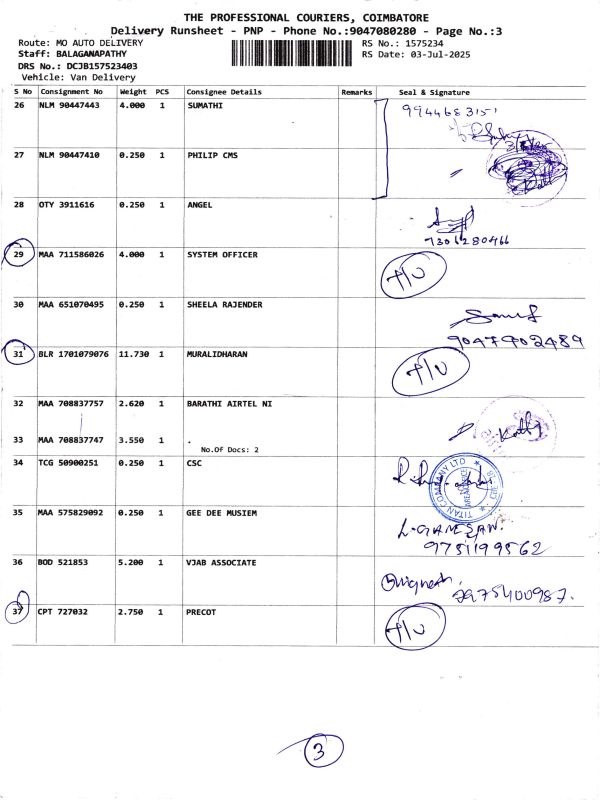 THE PROFESSIONAL COURIERS, COIMBATORE
Delivery Runsheet - PNP - Phone No.:9047080280 - Page No.:3
Route: MO AUTO DELIVERY RS No.: 1575234
Staff: BALAGANAPATHY RS Date: 03-Jul-2025
DRS No.: DCJB157523403
Vehicle: Van Delivery
S No Consignment No Weight PCS Consignee Details Remarks Seal & Signature
26 NLM 90447443 4.000 1 SUMATHI 9944683151
27 NLM 90447410 0.250 1 PHILIP CMS
28 OTY 3911616 0.250 1 ANGEL
7301280466
29 MAA 711586026 4.000 1 SYSTEM OFFICER T/U
30 MAA 651070495 0.250 1 SHEELA RAJENDER
9047902489
31 BLR 1701079076 11.730 1 MURALIDHARAN T/U
32 MAA 708837757 2.620 1 BARATHI AIRTEL NI
33 MAA 708837747 3.550 1 .
No.Of Docs: 2
34 TCG 50900251 0.250 1 CSC
TITAN COMPANY LTD
35 MAA 575829092 0.250 1 GEE DEE MUSIEM L-GANESAN.
9751199562
36 BOD 521853 5.200 1 VJAB ASSOCIATE Vignesh,
37 CPT 727032 2.750 1 PRECOT T/U
3